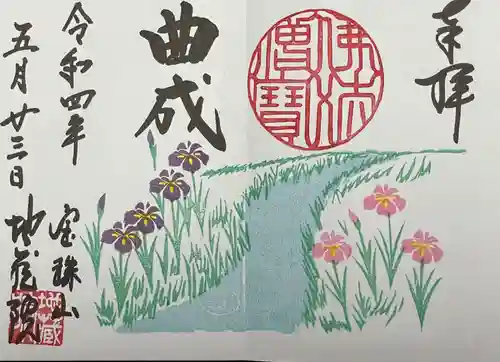 奉拝
佛法
僧寶
曲成
令和四年
五月廿三日
宝珠山
地蔵院
地蔵